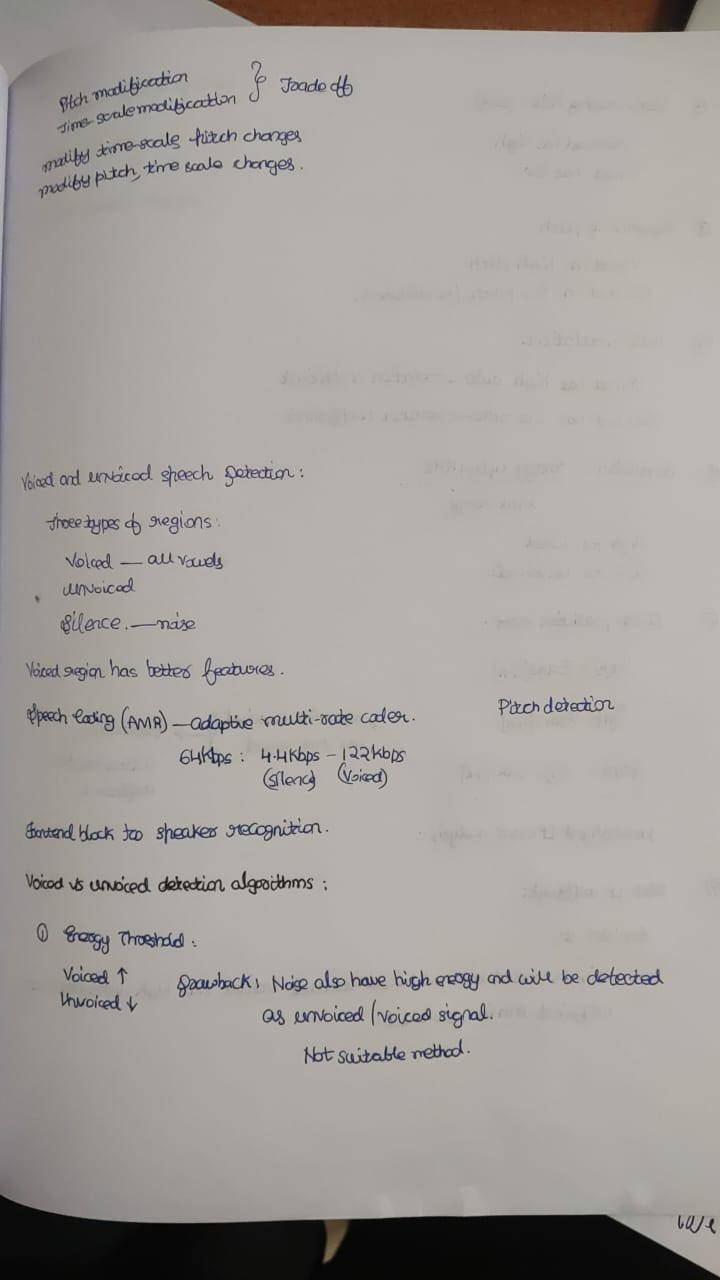 Pitch modification
Time-scale modification } Trade off
modify time-scale, pitch changes
modify pitch, time scale changes.
Voiced and unvoiced speech detection:
Three types of regions:
Voiced — all vowels
unvoiced
Silence. — noise
Voiced region has better features.
Speech Coding (AMR) — adaptive multi-rate coder.
Pitch detection
64Kbps: 4.4Kbps - 122kbps
(Silence) (Voiced)
Frontend block too speaker recognition.
Voiced vs unvoiced detection algorithms:
① Energy Threshold:
Voiced ↑ Drawback: Noise also have high energy and will be detected
Unvoiced ↓ as unvoiced/voiced signal.
Not suitable method.